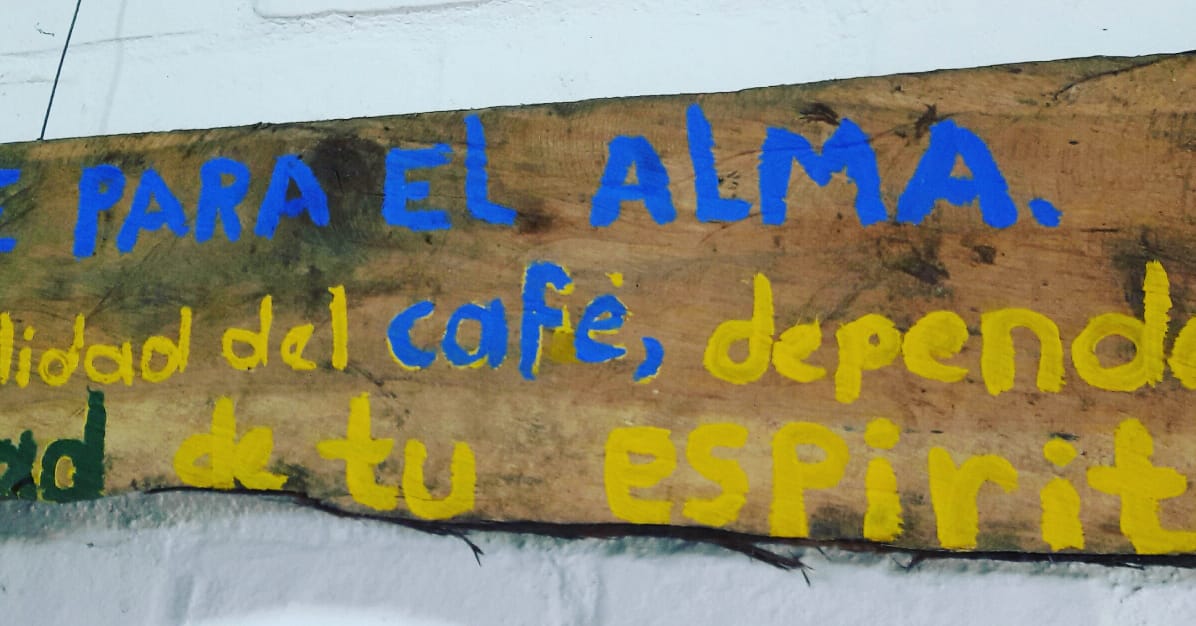 E PARA EL ALMA.
lidad del café, depende
ad de tu espirit